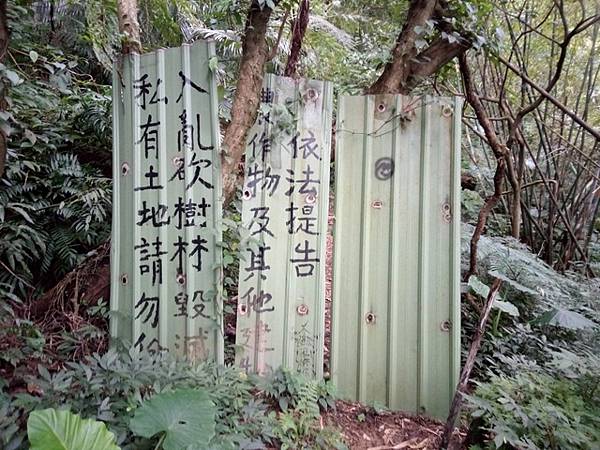 私有土地請勿侵
入亂砍樹林毀滅
農作物及其他建物
依法提告